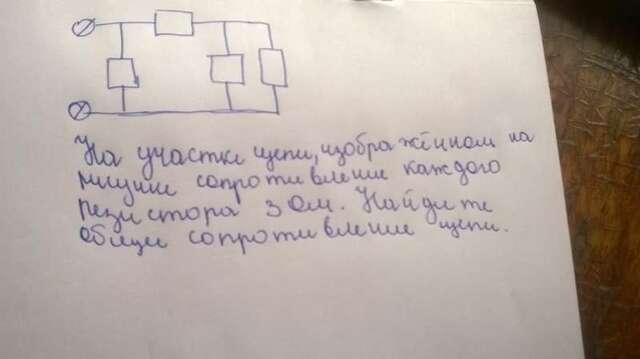 На участке цепи, изображённом на
рисунке сопротивление каждого
резистора 3 Ом. Найдите
общее сопротивление цепи.